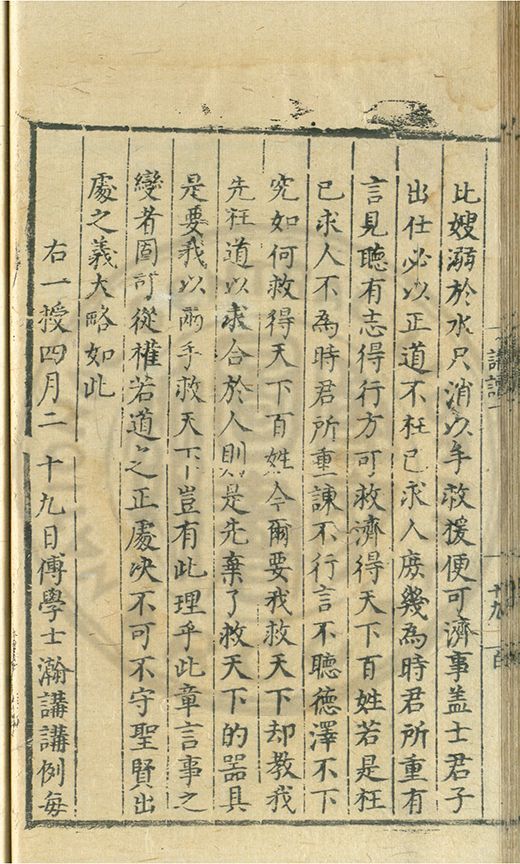 比嫂溺於水只消以手救援便可濟事盖士君子
出仕必以正道不枉己求人庶幾為時君所重有
言見聽有志得行方可救濟得天下百姓若是枉
己求人不為時君所重諫不行言不聽德澤不下
究如何救得天下百姓今爾要我救天下却教我
先枉道以求合於人則是先棄了救天下的器具
是要我以兩手救天下豈有此理乎此章言事之
變者固可從權若道之正處决不可不守聖賢出
處之義大略如此
右一授四月二十九日傅學士瀚講講例每